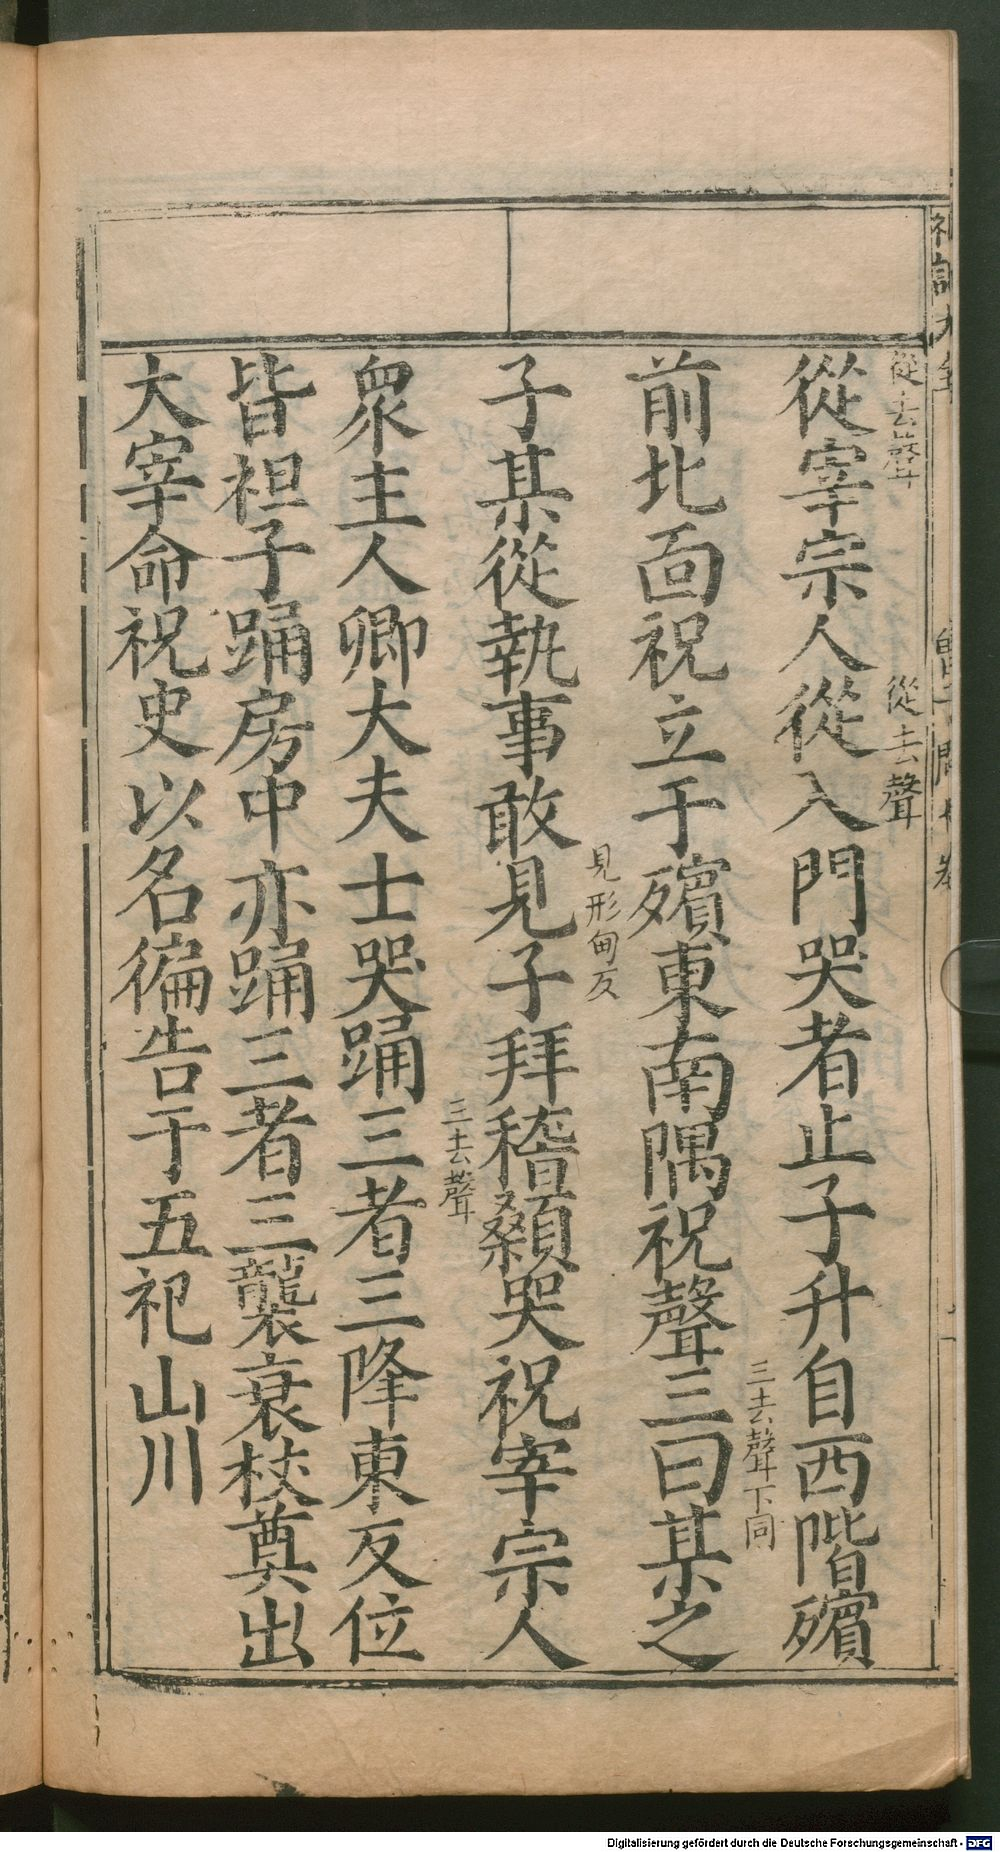 從去聲
從去聲
從宰宗人從入門哭者止子升自西階殯
三去聲下同
前北面祝立于殯東南隅祝聲三曰某之
見形甸反
子某從執事敢見子拜稽顙哭祝宰宗人
三去聲
衆主人卿大夫士哭踊三者三降東反位
皆袒子踊房中亦踊三者三襲衰杖奠出
大宰命祝史以名徧告于五祀山川
Digitalisierung gefördert durch die Deutsche Forschungsgemeinschaft - DFG